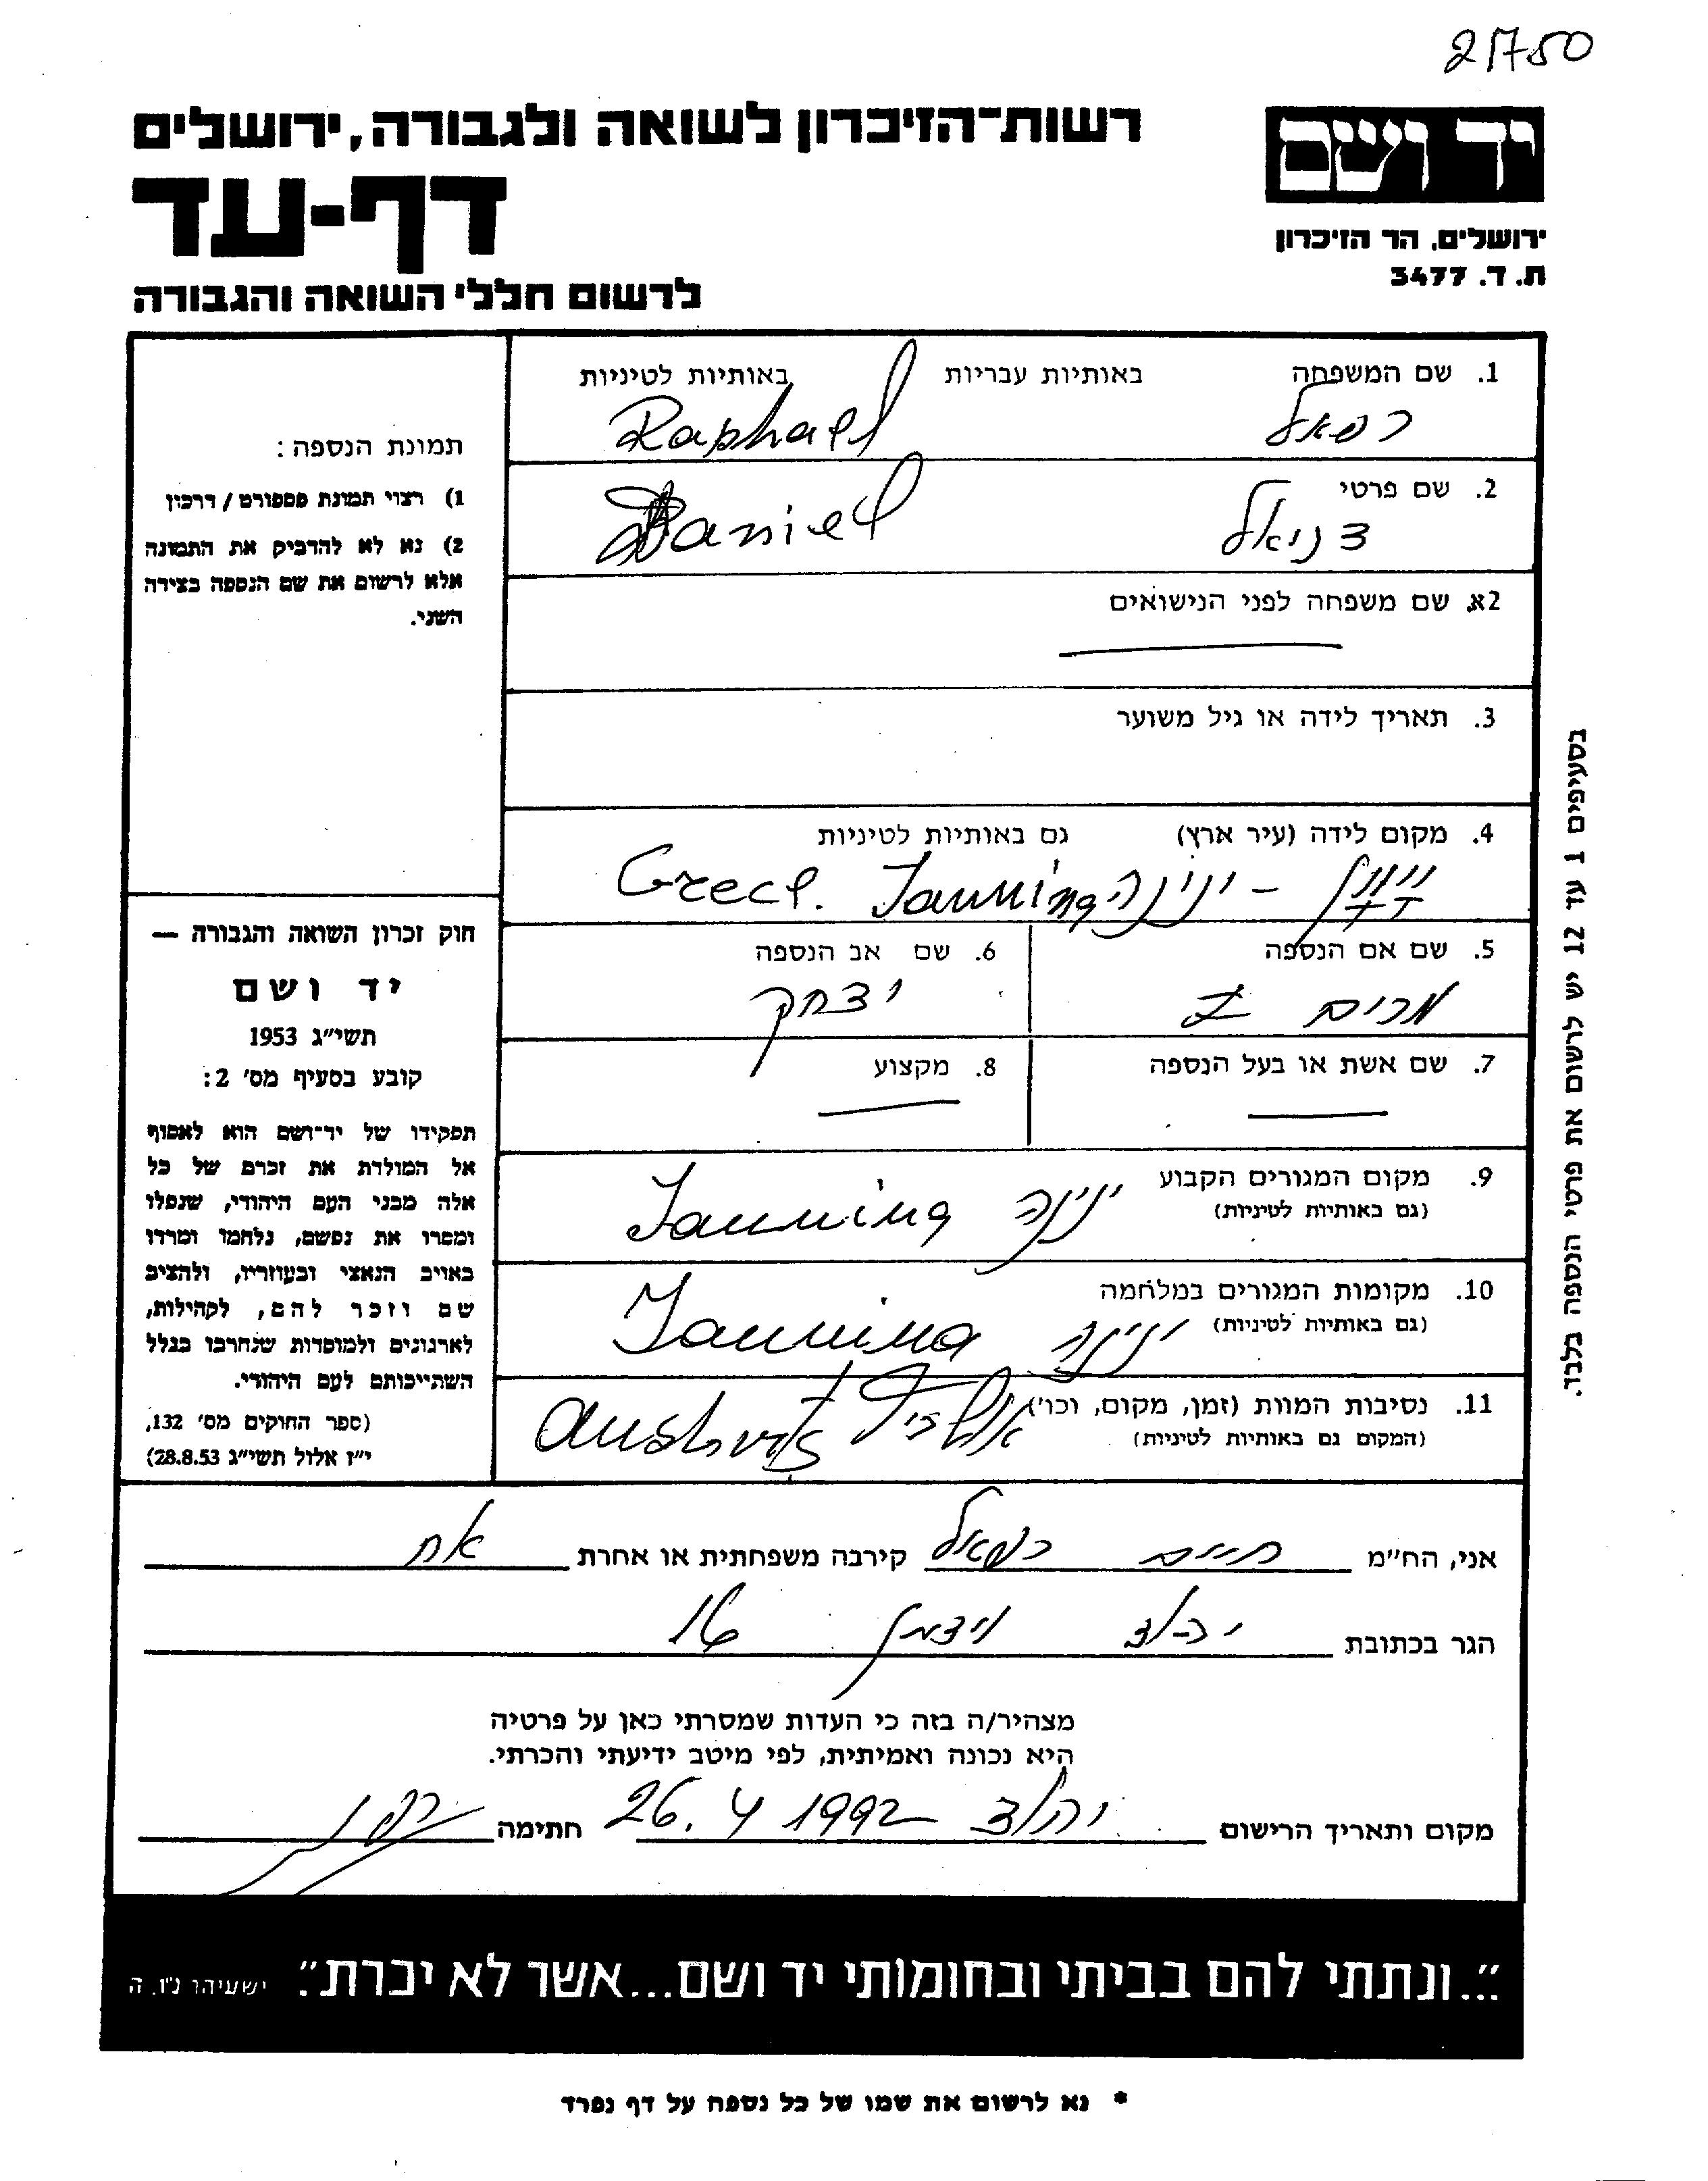 21750
רשות־הזיכרון לשואה ולגבורה, ירושלים
דף-עד
לרשום חללי השואה והגבורה
יד ושם
ירושלים, הר הזיכרון
ת. ד. 3477
1. שם המשפחה באותיות עבריות באותיות לטיניות
רפאל Raphael
2. שם פרטי
דניאל Daniel
2א. שם משפחה לפני הנישואים
3. תאריך לידה או גיל משוער
4. מקום לידה (עיר ארץ) גם באותיות לטיניות
יוון - ינינה Jannina Grece.
5. שם אם הנספה
מרים
6. שם אב הנספה
יצחק
7. שם אשת או בעל הנספה
8. מקצוע
9. מקום המגורים הקבוע
(גם באותיות לטיניות)
ינינה Jannina
10. מקומות המגורים במלחמה
(גם באותיות לטיניות)
ינינה Jannina
11. נסיבות המוות (זמן, מקום, וכו')
(המקום גם באותיות לטיניות)
תמונת הנספה:
1) רצוי תמונת פספורט / דרכון
2) נא לא להדביק את התמונה
אלא לרשום את שם הנספה בצידה
השני.
חוק זכרון השואה והגבורה —
יד ושם
תשי"ג 1953
קובע בסעיף מס' 2:
תפקידו של יד־ושם הוא לאסוף
אל המולדת את זכרם של כל
אלה מבני העם היהודי, שנפלו
ומסרו את נפשם, נלחמו ומרדו
באויב הנאצי ובעוזריו, ולהציב
שם וזכר להם, לקהילות,
לארגונים ולמוסדות שנחרבו בגלל
השתייכותם לעם היהודי.
(ספר החוקים מס' 132,
י"ז אלול תשי"ג 28.8.53)
בסעיפים 1 עד 12 יש לרשום את פרטי הנספה בלבד.
אני, הח"מ חיים רפאל קירבה משפחתית או אחרת אח
הגר בכתובת ויצמן 16
מצהיר/ה בזה כי העדות שמסרתי כאן על פרטיה
היא נכונה ואמיתית, לפי מיטב ידיעתי והכרתי.
מקום ותאריך הרישום 26.4 1992 חתימה
"...ונתתי להם בביתי ובחומותי יד ושם...אשר לא יכרת". ישעיהו נ"ו. ה
* נא לרשום את שמו של כל נספה על דף נפרד